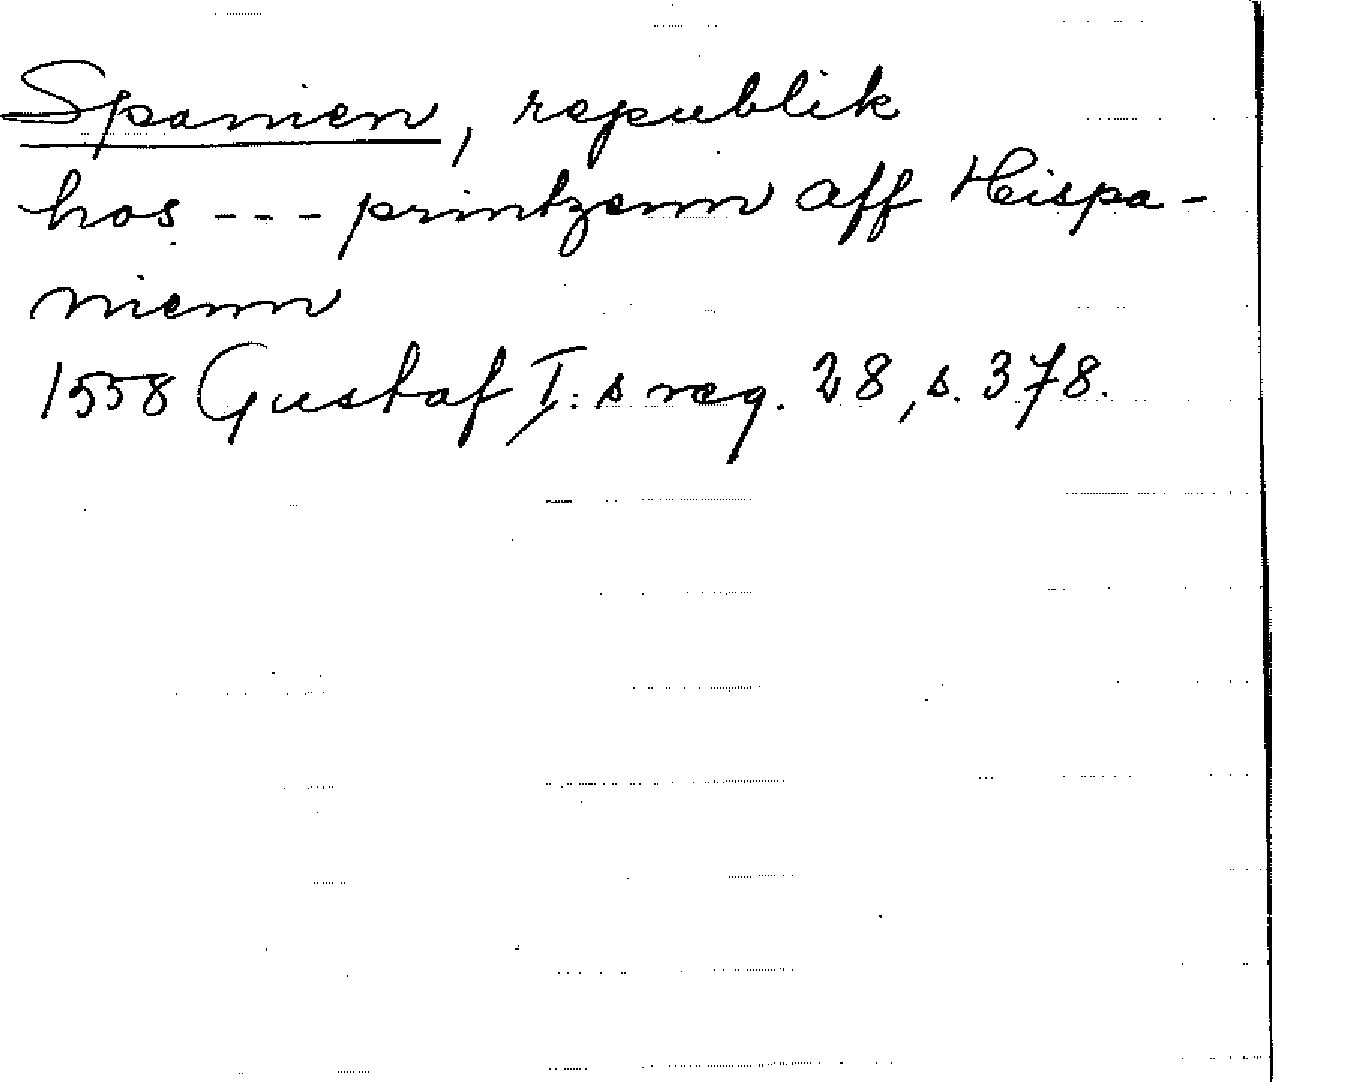 Spanien, republik
hos --- printzenn aff Hispa-
nienn
1558 Gustaf I:s reg. 28, s. 378.